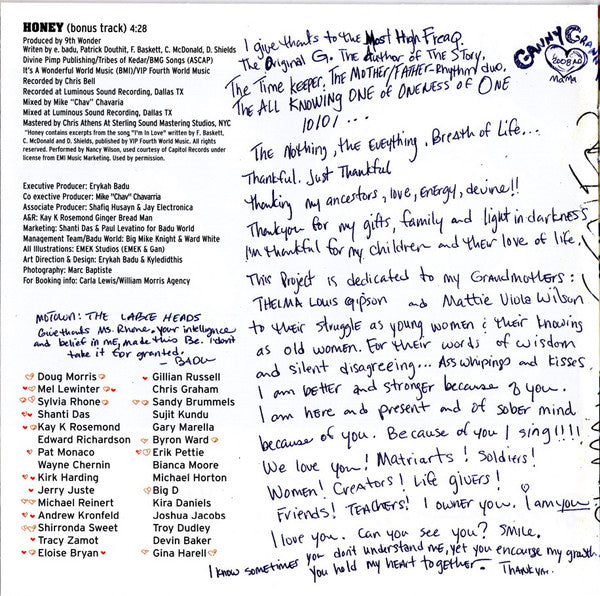 HONEY (bonus track) 4:28
Produced by 9th Wonder
Writen by e. badu, Patrick Douthit, F. Baskett, C. McDonald, D. Shields
Divine Pimp Publishing/Tribes of Kedar/BMG Songs (ASCAP)
It's A Wonderful World Music (BMI)/VIP Fourth World Music
Recorded by Chris Bell
Recorded at Luminous Sound Recording, Dallas TX
Mixed by Mike "Chav" Chavaria
Mixed at Luminous Sound Recording, Dallas TX
Mastered by Chris Athens At Sterling Sound Mastering Studios, NYC
"Honey contains excerpts from the song "I'm In Love" written by F. Baskett,
C. McDonald and D. Shields, published by VIP Fourth World Music. All rights
reserved. Performed by Nancy Wilson, used courtesy of Capitol Records under
license from EMI Music Marketing. Used by permission.
Executive Producer: Erykah Badu
Co exective Producer: Mike "Chav" Chavarria
Associate Producer: Shafiq Husayn & Jay Electronica
A&R: Kay K Rosemond Ginger Bread Man
Marketing: Shanti Das & Paul Levatino for Badu World
Management Team/Badu World: Big Mike Knight & Ward White
All Illustrations: EMEK Studios (EMEK & Gan)
Art Direction & Design: Erykah Badu & Kyledidthis
Photography: Marc Baptiste
For Booking info: Carla Lewis/William Morris Agency
MOTOWN: THE LABLE HEADS
Give thanks Ms. Rhone, your intelligence
and belief in me, made this Be. I don't
take it for granted.
- BADU
Doug Morris
Mel Lewinter
Sylvia Rhone
Shanti Das
Kay K Rosemond
Edward Richardson
Pat Monaco
Wayne Chernin
Kirk Harding
Jerry Juste
Michael Reinert
Andrew Kronfeld
Shirronda Sweet
Tracy Zamot
Eloise Bryan
Gillian Russell
Chris Graham
Sandy Brummels
Sujit Kundu
Gary Marella
Byron Ward
Erik Pettie
Bianca Moore
Michael Horton
Big D
Kira Daniels
Joshua Jacobs
Troy Dudley
Devin Baker
Gina Harell
I give thanks to the Most High Freaq.
The Original G. The Author of The Story.
The Time keeper. The MOTHER/FATHER-Rhythm duo.
The ALL KNOWING ONE of ONENESS of ONE
10/01 ...
The Nothing, the Eveything, Breath of Life...
Thankful. Just Thankful
Thanking my ancestors, love, energy, devine!!
Thankyou for my gifts, family and light in darkness
I'm thankful for my children and their love of life.
This Project is dedicated to my Grandmothers:
THELMA Louis Gipson and Mattie Viola Wilson
to their struggle as young women & their knowing
as old women. For their words of wisdom
and silent disagreeing... Asswhipings and kisses.
I am better and stronger because of you.
I am here and present and of sober mind
because of you. Because of you I sing!!!!
We love you! Matriarts! Soldiers!
Women! Creators! Life givers!
Friends! TEACHERS! I owner you. I am you
I love you. Can you see you? SMILE.
I know sometimes you don't understand me, yet you encourage my growth.
You hold my heart together. THANK YAH.
GANNY
2008 AD
MAMA